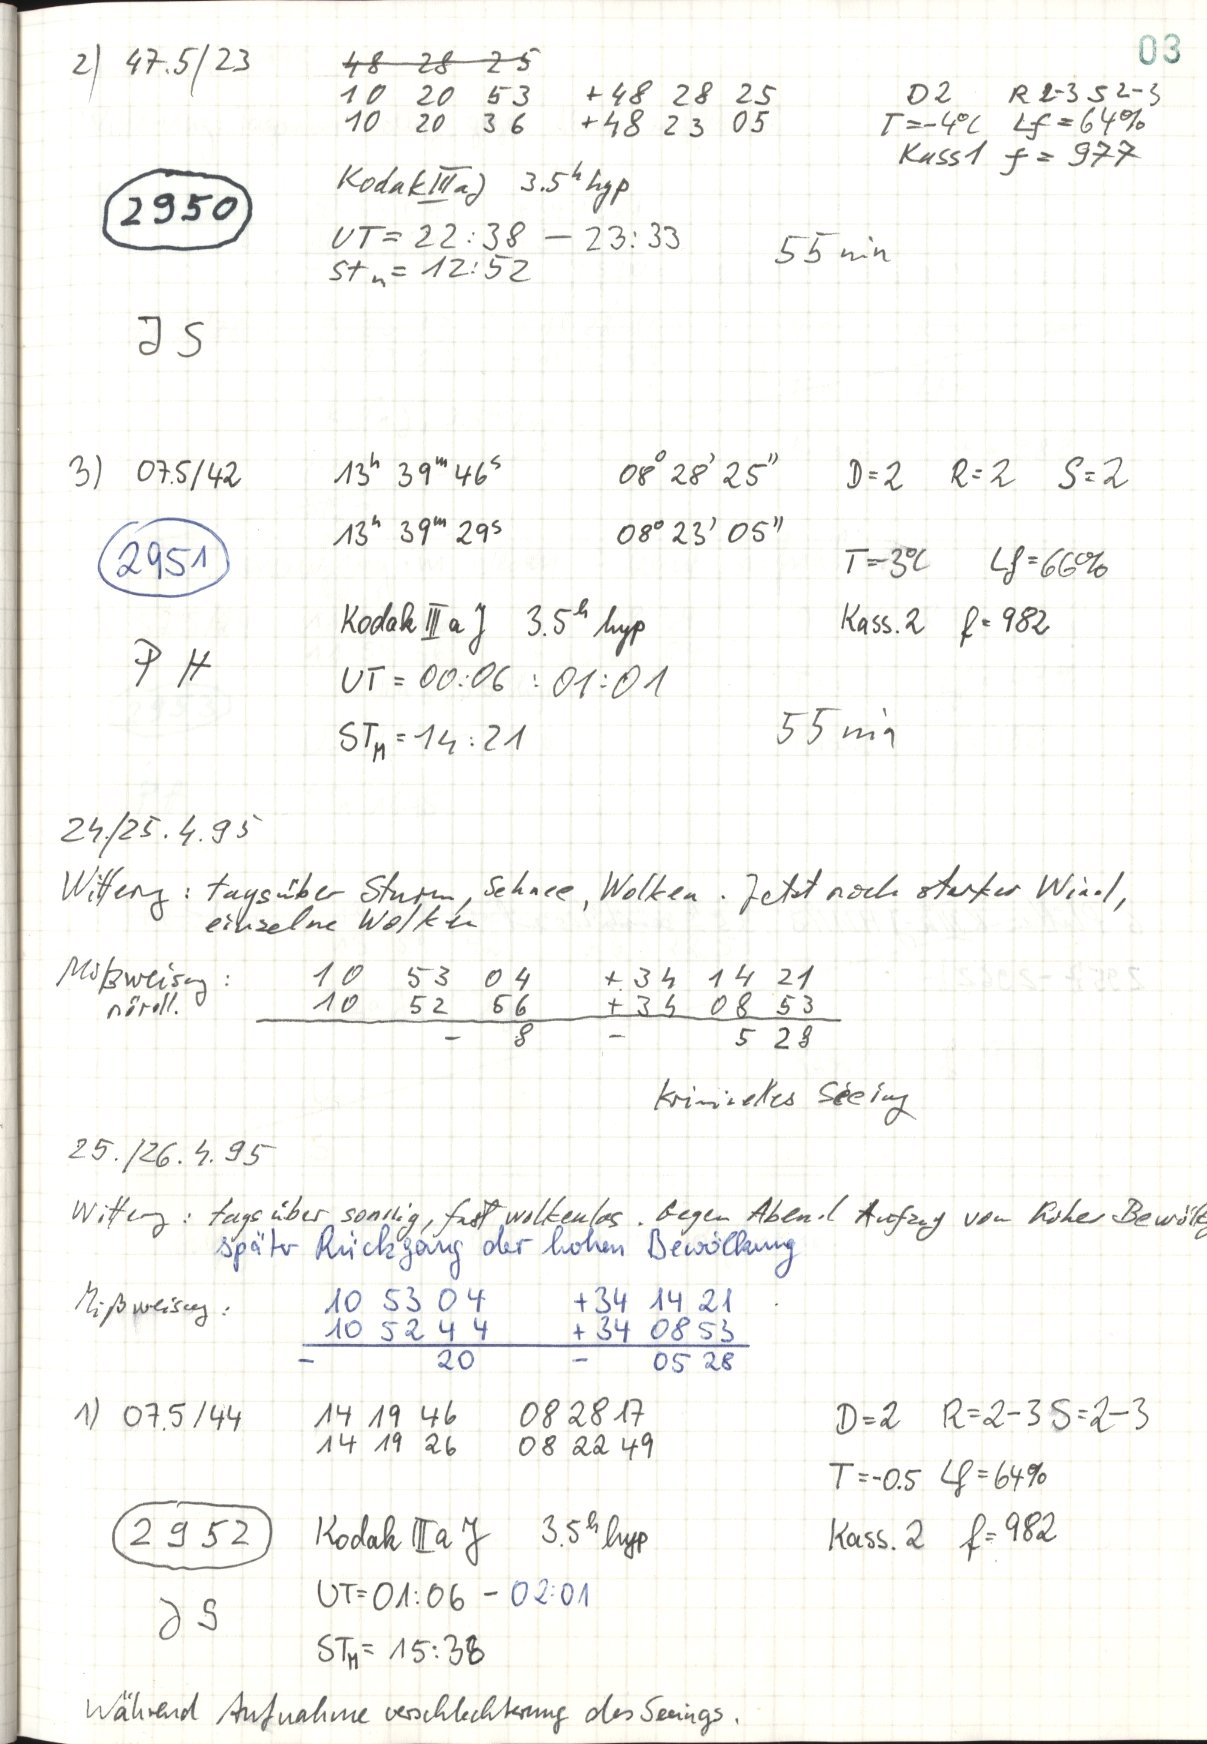 03
2) 47.5/23 48 28 25
10 20 53 +48 28 25 D2 R 2-3 S 2-3
10 20 36 +48 23 05 T=-4°C Lf=64%
Kass1 f=977
Kodak III a J 3.5h hyp
2950
UT=22:38 — 23:33 55 min
St m = 12:52
J S
3) 07.5/42 13h 39m 46s 08° 28' 25" D=2 R=2 S=2
13h 39m 29s 08° 23' 05"
2951 T=-3°C Lf=66%
Kodak III a J 3.5h hyp Kass. 2 f=982
P H UT = 00:06 : 01:01
STM = 14:21 55 min
24./25.4.95
Witterung: tagsüber Sturm, Schnee, Wolken. Jetzt noch starker Wind,
einzelne Wolken
Mißweisung: 10 53 04 +34 14 21
nördl. 10 52 56 +34 08 53
- 8 - 5 28
kriminelles Seeing
25./26.4.95
Witterung: tagsüber sonnig, fast wolkenlos. Gegen Abend Aufzug von hoher Bewölk
später Rückgang der hohen Bewölkung
Mißweisung: 10 53 04 +34 14 21
10 52 44 +34 08 53
- 20 - 05 28
1) 07.5/44 14 19 46 08 28 17 D=2 R=2-3 S=2-3
14 19 26 08 22 49
T=-0.5 Lf=64%
2952 Kodak III a J 3.5h hyp Kass. 2 f=982
UT=01:06 - 02:01
J S
STM = 15:38
Während Aufnahme verschlechterung des Seeings.